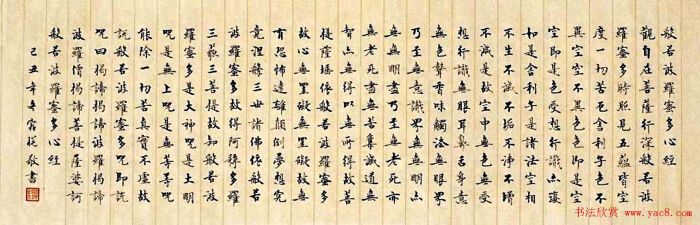 般若波羅蜜多心經
觀自在菩薩行深般若波
羅蜜多時照見五蘊皆空
度一切苦厄舍利子色不
異空空不異色色即是空
空即是色受想行識亦復
如是舍利子是諸法空相
不生不滅不垢不淨不增
不減是故空中無色無受
想行識無眼耳鼻舌身意
無色聲香味觸法無眼界
乃至無意識界無無明亦
無無明盡乃至無老死亦
無老死盡無苦集滅道無
智亦無得以無所得故菩
提薩埵依般若波羅蜜多
故心無罣礙無罣礙故無
有恐怖遠離顛倒夢想究
竟涅槃三世諸佛依般若
波羅蜜多故得阿耨多羅
三藐三菩提故知般若波
羅蜜多是大神咒是大明
咒是無上咒是無等等咒
能除一切苦真實不虛故
說般若波羅蜜多咒即說
咒曰揭諦揭諦波羅揭諦
波羅僧揭諦菩提薩婆訶
般若波羅蜜多心經
己丑年敬書
书法欣赏
www.yac8.com